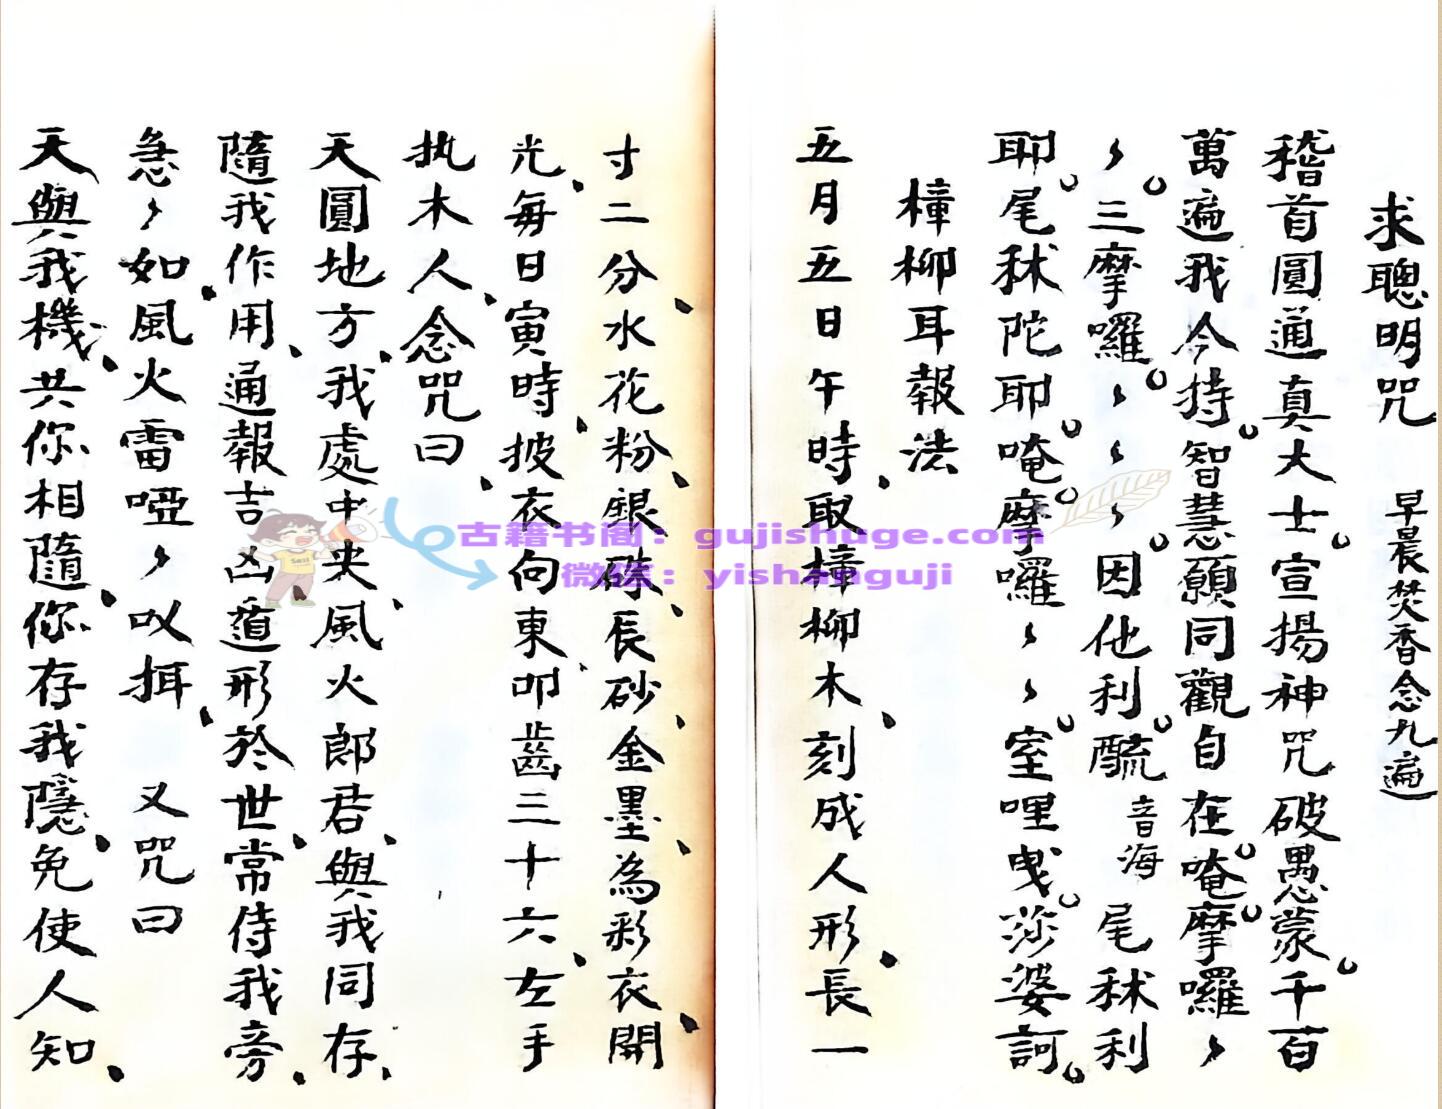 求聰明咒 早晨焚香念九遍
稽首圓通真大士宣揚神咒破愚蒙千百
萬遍我今持智慧願同觀自在唵摩囉〻
〻三摩囉〻〻〻因他利醯音海尾秫利
耶尾秫陀耶唵摩囉〻〻室哩曳莎婆訶
樟柳耳報法
五月五日午時取樟柳木刻成人形長一
寸二分水花粉銀硃辰砂金墨為彩衣開
光每日寅時披衣向東叩齒三十六左手
执木人念咒曰
天圓地方我處中央風火郎君與我同存
隨我作用通報吉凶道形於世常侍我旁
急〻如風火雷啞〻以挕 又咒曰
天與我機共你相隨你存我隱免使人知
古籍书阁：gujishuge.com
微信：yishanguji